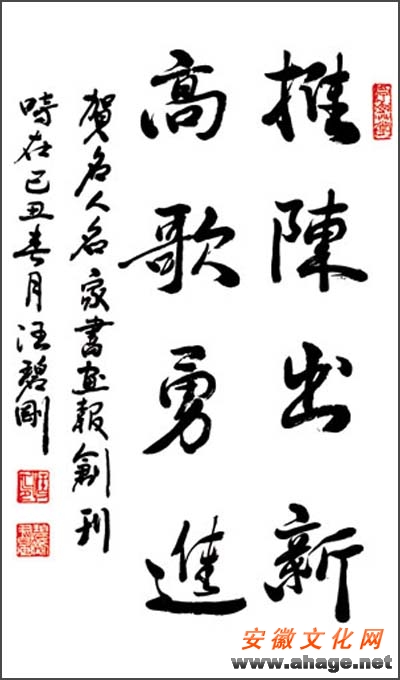 推陳出新
高歌勇進
賀名人名家書画報創刊
時在己丑春月汪碧剛
安徽文化网
www.ahage.net